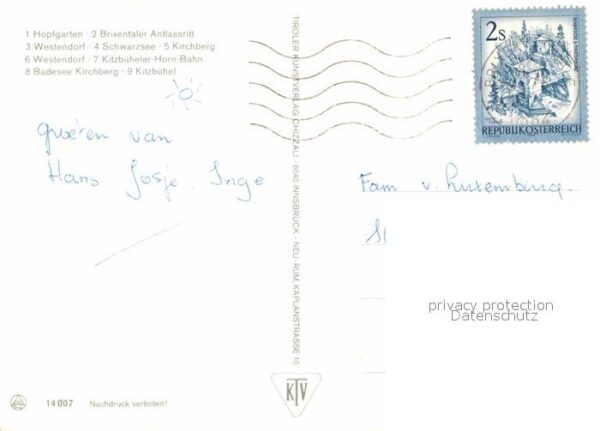 1 Hopfgarten · 2 Brixentaler Antlassritt
3 Westendorf · 4 Schwarzsee · 5 Kirchberg
6 Westendorf · 7 Kitzbüheler-Horn-Bahn
8 Badesee Kirchberg · 9 Kitzbühel
groeten van
Hans. Josje. Inge
TIROLER KUNSTVERLAG CHIZZALI · 6040 INNSBRUCK - NEU RUM, KAPLANSTRASSE 10
2s
REPUBLIK ÖSTERREICH
Fam. v. Lutemburg
privacy protection
Datenschutz
KTV
14007 Nachdruck verboten!